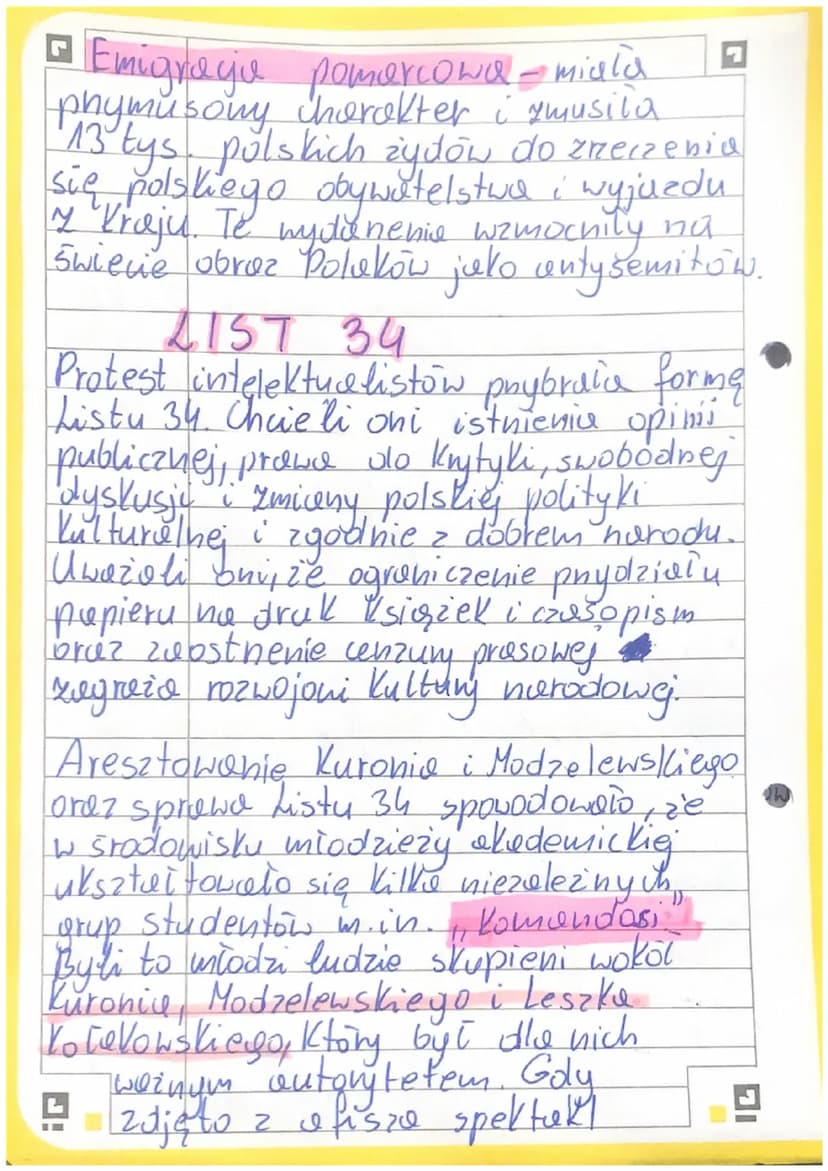 Emigracja pomarcowa - miała
przymusowy charakter i zmusiła
13 tys. polskich żydów do zrzeczenia
się polskiego obywatelstwa i wyjazdu
z kraju. Te wydarzenia wzmocniły na
świecie obraz Polaków jako antysemitów.
LIST 34
Protest intelektualistów przybrała formę
Listu 34. Chcieli oni istnienia opinii
publicznej, prawa do krytyki, swobodnej
dyskusji i zmiany polskiej polityki
kulturalnej i zgodnie z dobrem narodu.
Uważali oni, że ograniczenie przydziału
papieru na druk książek i czasopism
oraz zaostrzenie cenzury prasowej
zagraża rozwojowi kultury narodowej.
Aresztowanie Kuronia i Modzelewskiego
oraz sprawa Listu 34 spowodowało, że
w środowisku młodzieży akademickiej
ukształtowało się kilka niezależnych
grup studentów m.in. "Komandosi"
Byli to młodzi ludzie skupieni wokół
Kuronia, Modzelewskiego i Leszka
Kołakowskiego, który był dla nich
ważnym autorytetem. Gdy
zdjęto z afisza spektakl